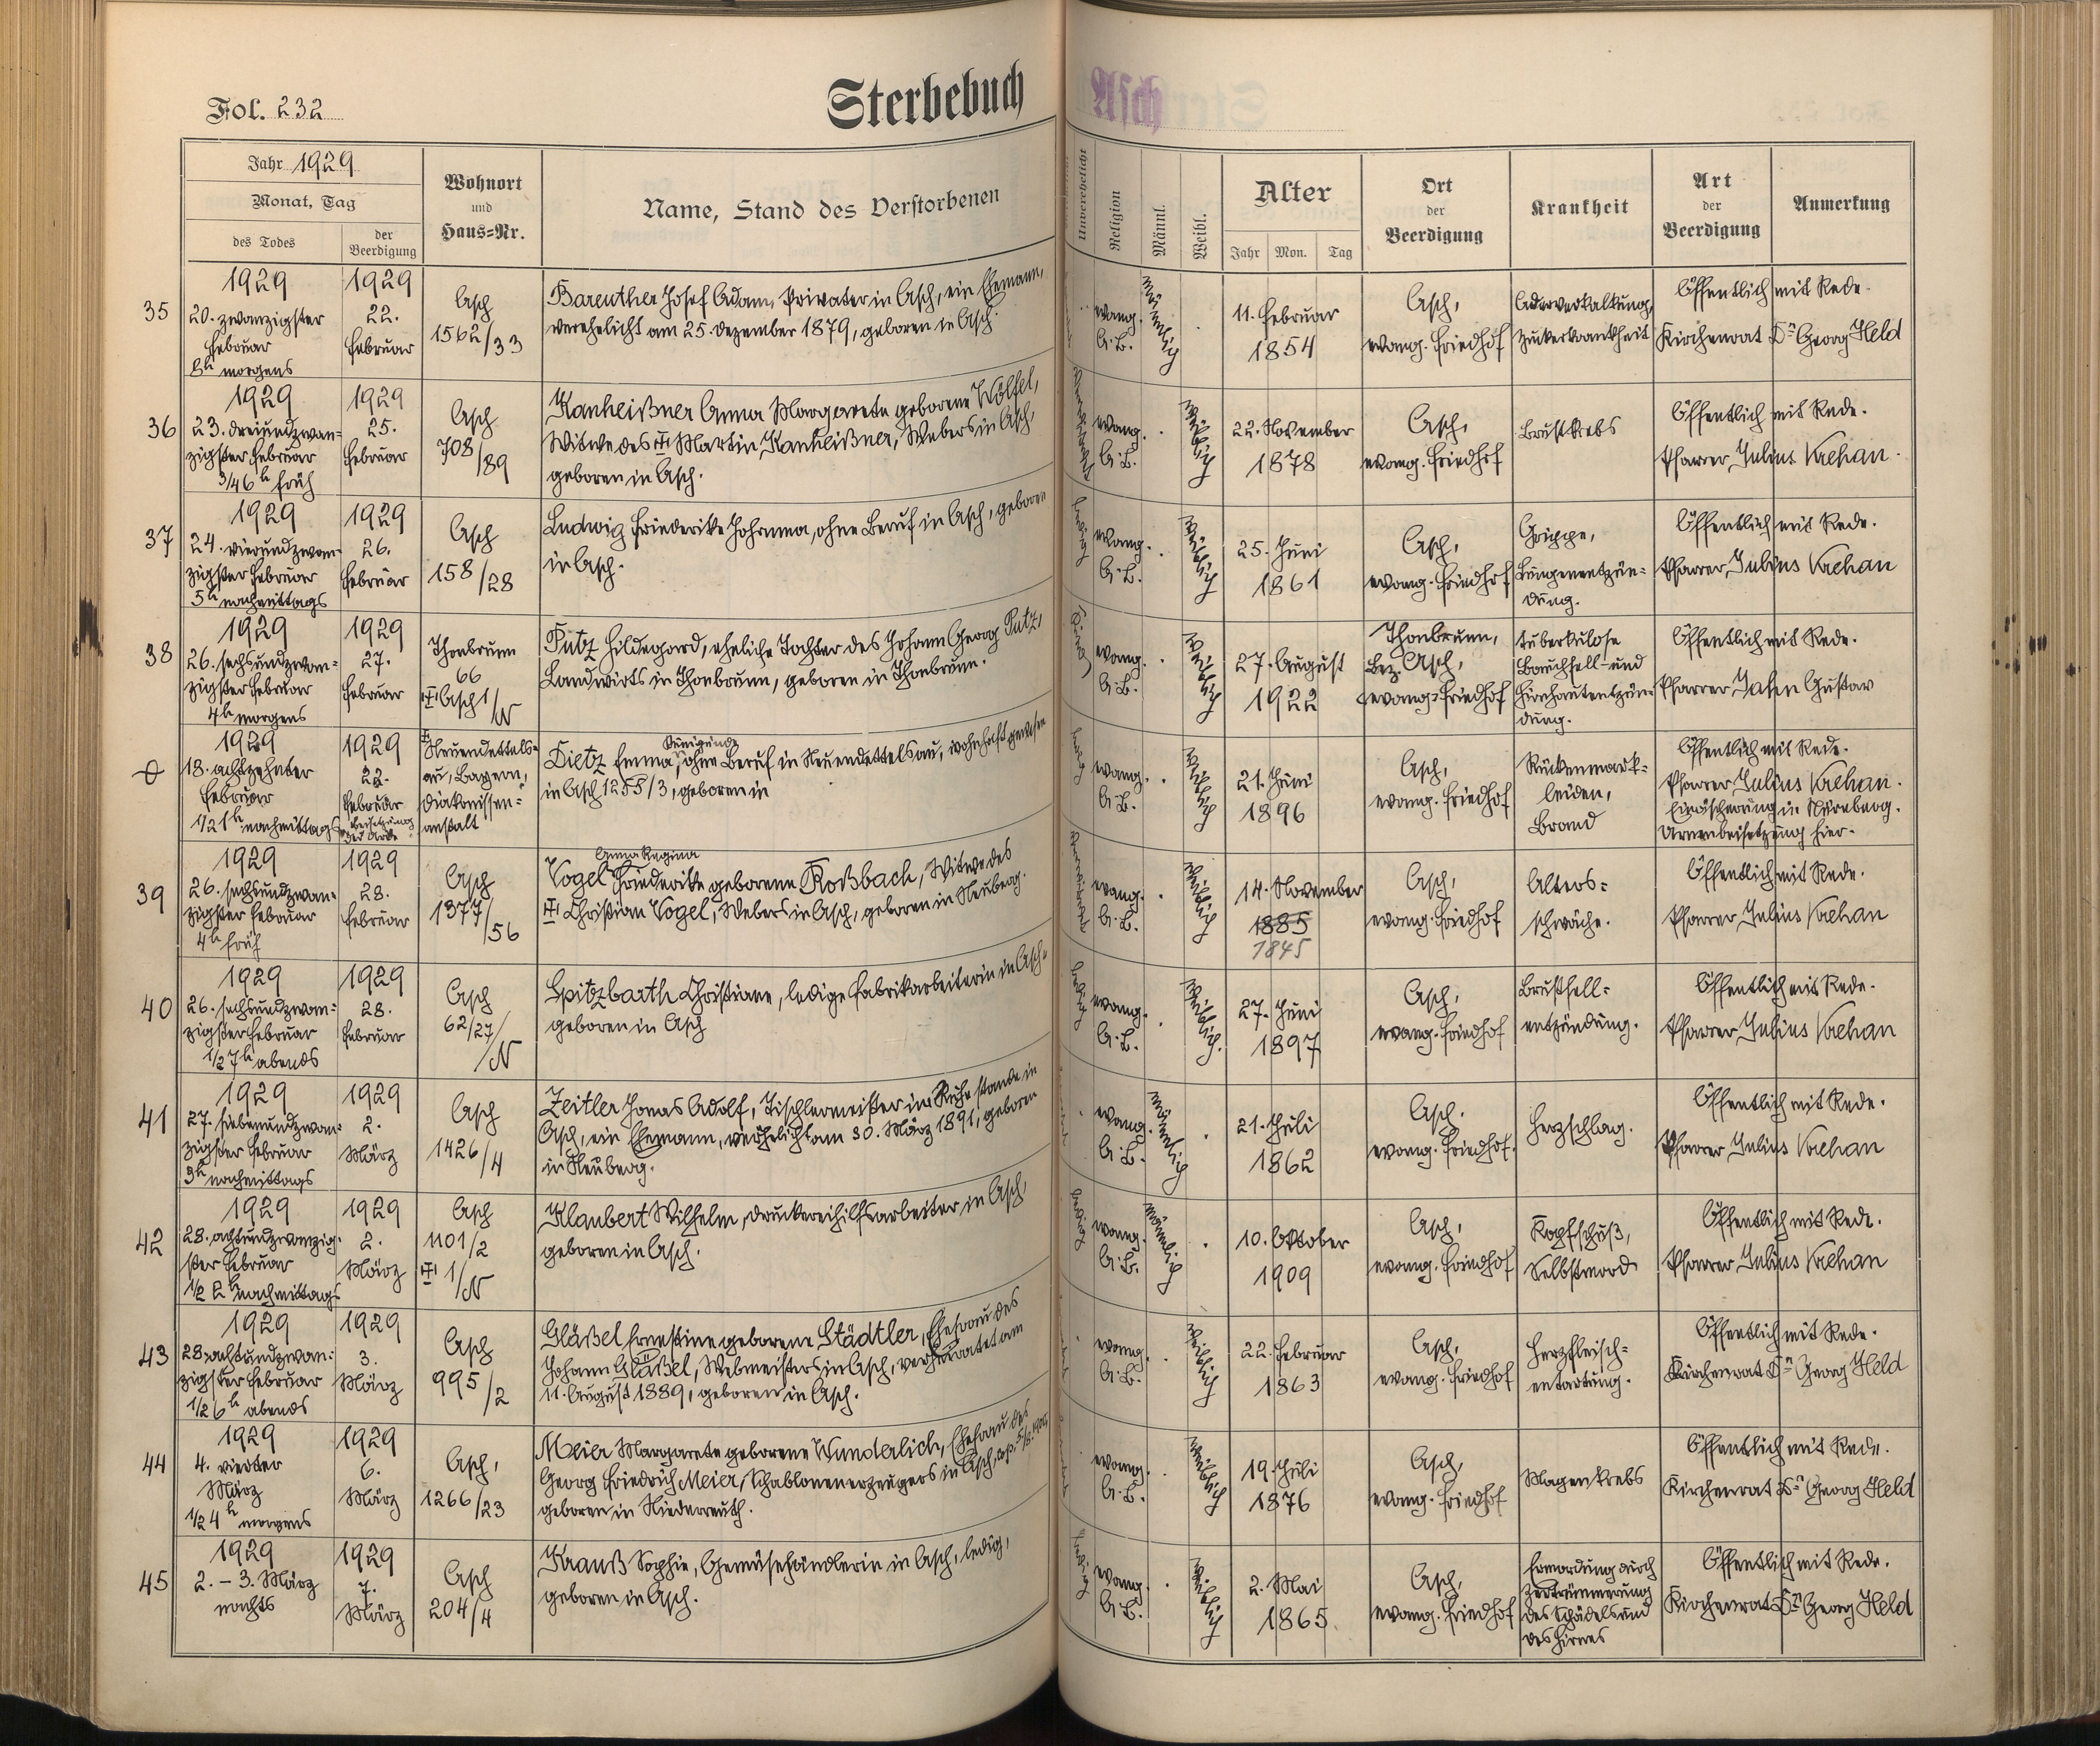 Fol. 232
Sterbebuch
Asch
Jahr 1929
Monat, Tag
des Todes
der
Beerdigung
Wohnort
und
Haus=Nr.
Name, Stand des Verstorbenen
Unverehelicht
Religion
Männl.
Weibl.
Alter
Jahr
Mon.
Tag
Ort
der
Beerdigung
Krankheit
Art
der
Beerdigung
Anmerkung
35
1929
20. zwanzigster
Februar
8h morgens
1929
22.
Februar
Asch
1562/33
Bareuther Josef Adam, Privater in Asch, ein Ehemann,
verehelicht am 25. Dezember 1879, geboren in Asch.
evang.
A.B.
männlich
11. Februar
1854
Asch,
evang. Friedhof
Aderverkalkung,
Zuckerkrankheit
Öffentlich mit Rede.
Kirchenrat Dr. Georg Held
36
1929
23. dreiundzwan=
zigster Februar
3/4 6h früh
1929
25.
Februar
Asch
708/89
Kanheißner Anna Margarete geborene Wölfel,
Witwe des Martin Kanheißner, Webers in Asch,
geboren in Asch.
evang.
A.B.
weiblich
22. November
1878
Asch,
evang. Friedhof
Brustkrebs
Öffentlich mit Rede.
Pfarrer Julius Krehan.
37
1929
24. vierundzwan=
zigster Februar
5h nachmittags
1929
26.
Februar
Asch
158/28
Ludwig Friederike Johanna, ohne Beruf in Asch, geboren
in Asch.
ledig
evang.
A.B.
weiblich
25. Juni
1861
Asch,
evang. Friedhof
Grippe,
Lungenentzün=
dung.
Öffentlich mit Rede.
Pfarrer Julius Krehan
38
1929
26. sechsundzwan=
zigster Februar
4h morgens
1929
27.
Februar
Thonbrunn
66
Asch 1/N
Putz Hildegard, eheliche Tochter des Johann Georg Putz,
Landwirts in Thonbrunn, geboren in Thonbrunn.
evang.
A.B.
weiblich
27. August
1922
Thonbrunn,
Bez. Asch,
evang. Friedhof
tuberkulose
Bauchfell- und
Hirnhautentzün=
dung.
Öffentlich mit Rede.
Pfarrer Jahn Gustav
0
1929
18. achtzehnter
Februar
1/2 1h nachmittags
1929
22.
Februar
Beisetzung
der Urne
Neuendettels=
au, Bayern,
Diakonissen=
anstalt
Kunigunde
Dietz Emma, ohne Beruf in Neuendettelsau, wohnhaft gewesen
in Asch 1255/3, geboren in
ledig
evang.
A.B.
weiblich
21. Juni
1896
Asch,
evang. Friedhof
Rückenmark=
leiden,
Brand
Öffentlich mit Rede.
Pfarrer Julius Krehan.
Einäscherung in Nürnberg.
Urnenbeisetzung hier.
39
1929
26. sechsundzwan=
zigster Februar
4h früh
1929
28.
Februar
Asch
1377/56
Anna Regina
Vogel Friederike geborene Roßbach, Witwe des
Christian Vogel, Webers in Asch, geboren in Neuberg.
evang.
A.B.
weiblich
14. November
1885
1845
Asch,
evang. Friedhof
Alters=
schwäche.
Öffentlich mit Rede.
Pfarrer Julius Krehan
40
1929
26. sechsundzwan=
zigster Februar
1/2 7h abends
1929
28.
Februar
Asch
62/27/N
Spitzbarth Christiane, ledige Fabrikarbeiterin in Asch,
geboren in Asch
ledig
evang.
A.B.
weiblich.
27. Juni
1897
Asch,
evang. Friedhof
Brustfell=
entzündung.
Öffentlich mit Rede.
Pfarrer Julius Krehan
41
1929
27. siebenundzwan=
zigster Februar
3h nachmittags
1929
2.
März
Asch
1426/4
Zeitler Jonas Adolf, Tischlermeister im Ruhestande in
Asch, ein Ehemann, verehelicht am 30. März 1891, geboren
in Neuberg.
evang.
A.B.
männlich
21. Juli
1862
Asch.
evang. Friedhof.
Herzschlag.
Öffentlich mit Rede.
Pfarrer Julius Krehan
42
1929
28. achtundzwanzig=
ster Februar
1/2 2h nachmittags
1929
2.
März
Asch
1101/2
1/N
Klaubert Wilhelm, Druckereihilfsarbeiter in Asch,
geboren in Asch.
ledig
evang.
A.B.
männlich
10. Oktober
1909
Asch,
evang. Friedhof
Kopfschuß,
Selbstmord
Öffentlich mit Rede.
Pfarrer Julius Krehan
43
1929
28. achtundzwan=
zigster Februar
1/2 6h abends
1929
3.
März
Asch
995/2
Gläßel Ernestine geborene Städtler, Ehefrau des
Johann Gläßel, Webmeisters in Asch, verheiratet am
11. August 1889, geboren in Asch.
evang.
A.B.
weiblich
22. Februar
1863
Asch,
evang. Friedhof
Herzfleisch=
entartung.
Öffentlich mit Rede.
Kirchenrat Dr. Georg Held
44
1929
4. vierter
März
1/2 4h morgens
1929
6.
März
Asch,
1266/23
Meier Margarete geborene Wunderlich, Ehefrau des
Georg Friedrich Meier, Schablonenerzeugers in Asch,
geboren in Niederreuth.
evang.
A.B.
weiblich
19. Juli
1876
Asch,
evang. Friedhof
Magenkrebs
Öffentlich mit Rede.
Kirchenrat Dr. Georg Held
45
1929
2. – 3. März
nachts
1929
7.
März
Asch
204/4
Krauß Sophie, Gemüsehändlerin in Asch, ledig,
geboren in Asch.
ledig
evang.
A.B.
weiblich
2. Mai
1865.
Asch,
evang. Friedhof
Ermordung durch
Zertrümmerung
des Schädels und
des Hirnes
Öffentlich mit Rede.
Kirchenrat Dr. Georg Held